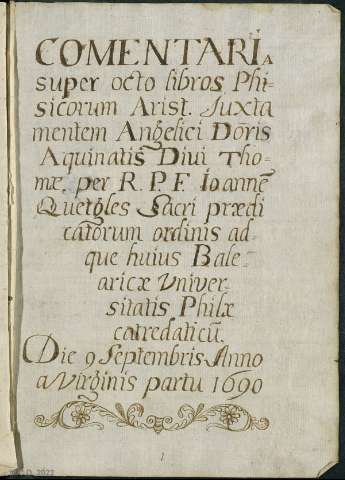 COMENTARIA
super octo libros Phi-
sicorum Arist. Juxta
mentem Angelici Dōris
Aquinatis Divi Tho-
mæ, per R. P. F. Ioannē
Quetgles Sacri prædi
catorum ordinis ad-
que huius Bale-
aricæ Univer-
sitatis Philæ
catredaticū.
Die 9 Septembris Anno
a Virginis partu 1690
1
2022